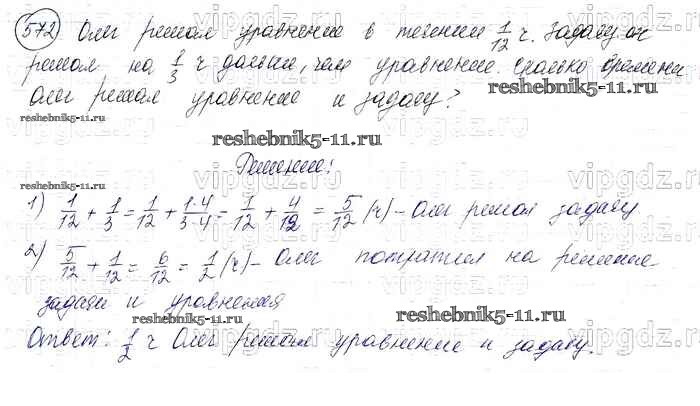 572 Олег решал уравнение в течении 1/12 ч. Задачу он
решал на 1/3 ч дольше, чем уравнение. Сколько времени
Олег решал уравнение и задачу?
reshebnik5-11.ru
reshebnik5-11.ru
Решение:
1) 1/12 + 1/3 = 1/12 + 1·4/3·4 = 1/12 + 4/12 = 5/12 (ч) – Олег решал задачу
2) 5/12 + 1/12 = 6/12 = 1/2 (ч) – Олег потратил на решение
задачи и уравнения
reshebnik5-11.ru
reshebnik5-11.ru
Ответ: 1/2 ч Олег решал уравнение и задачу.